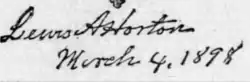 Lewis A Horton
March 4, 1898